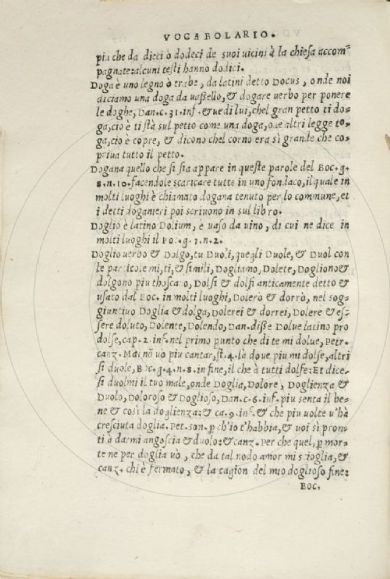 VOCABOLARIO.
piu che da dieci o dodeci de suoi uicini à la chiesa accom⸗
pagnate: alcuni testi hanno dodici.
Doga è uno legno ò trabe, da latini detto Docus, onde noi
diciamo una doga da uasello, & dogare uerbo per ponere
le doghe, Dan. c. 31. inf. & ue di lui, chel gran petto ti do⸗
ga, cio è ti stà sul petto come una doga, o ue altri legge to⸗
ga, cio è copre, & dicono chel corno era si grande che co⸗
priua tutto il petto.
Dogana quello che si sia appare in queste parole del Boc. g.
8. n. 10. facendole scaricare tutte in uno fondaco, il quale in
molti luoghi è chiamato dogana tenuto per lo commune, et
i detti doganieri poi scriuono in sul libro.
Doglio è latino Dolium, e uaso da uino, di cui ne dice in
molti luoghi il Boc. g. 7. n. 2.
Doglio uerbo & Dolgo, tu Duoli, quegli Duole, & Duol con
le particole mi, ti, & simili, Dogliamo, Dolete, Dogliono &
dolgono piu thosca o, Dolsi & dolfi anticamente detto &
usato dal Boc. in molti luoghi, Dolerò & dorrò, nel sog⸗
giuntiuo Doglia & dolga, Dolerei & dorrei, Dolere & es⸗
sere doluto, Dolente, Dolendo, Dan. disse Dolue latino pro
dolse, cap. 2. inf. nel primo punto che di te mi dolue, Petr.
canz. Mai nõ uo piu cantar, st. 4. là doue piu mi dolse, altri
si duole, Boc. g. 4. n. 8. in fine, il che à tutti dolse: Et dice⸗
si duolmi il tuo male, onde Doglia, Dolore, Doglienza &
Duolo, Doloroso & Doglioso, Dan. c. 6. inf. piu senta il be⸗
ne & cosi la doglienza: & ca. 9. inf. & che piu uolte u'hà
cresciuta doglia. Pet. son. p ch'io t'habbia, & uoi si pron⸗
ti à darmi angoscia & duolo: & canz. Per che quel, p mor⸗
te ne per doglia uò, che da tal nodo amor mi scioglia, &
canz. chi è fermato, & la cagion del mio doglioso fine:
Boc.